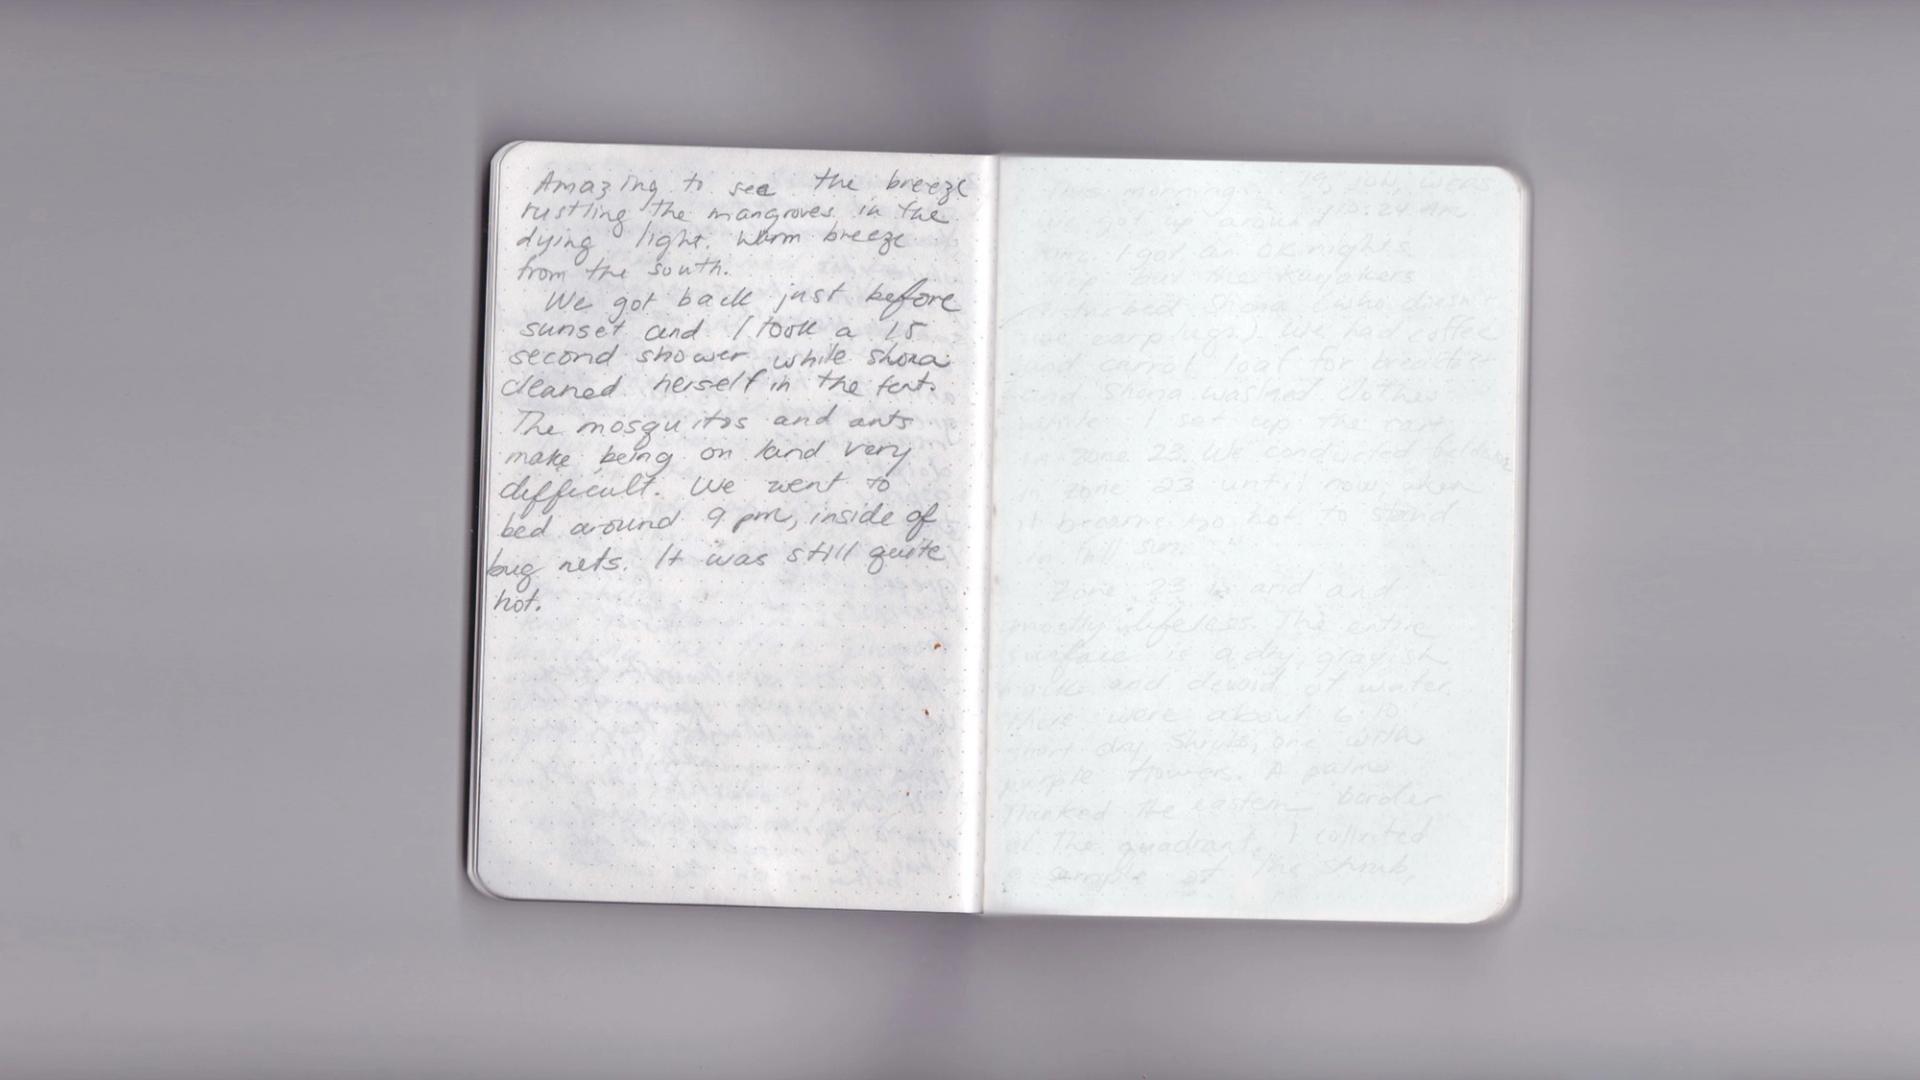 Amazing to see the breeze
rustling the mangroves in the
dying light. Warm breeze
from the south.
We got back just before
sunset and I took a 15
second shower while Shona
cleaned herself in the tent.
The mosquitos and ants
make being on land very
difficult. We went to
bed around 9 pm, inside of
bug nets. It was still quite
hot.
This morning
we got up around
I got an OK nights
but the Kayakers
disturbed Shona (who doesn't
use earplugs). We had coffee
and carrot loaf for breakfast
and Shona washed clothes
while I set up the
in zone 23. We conducted
in zone 23 until now, when
it became too hot to stand
in full sun.
Zone 23 is arid and
mostly lifeless. The entire
surface is a dry, grayish
and devoid of water.
There were about 6-10
short dry shrubs, one with
purple flowers. A palm
flanked the eastern border
of the quadrant. I collected
a sample of the shrub,